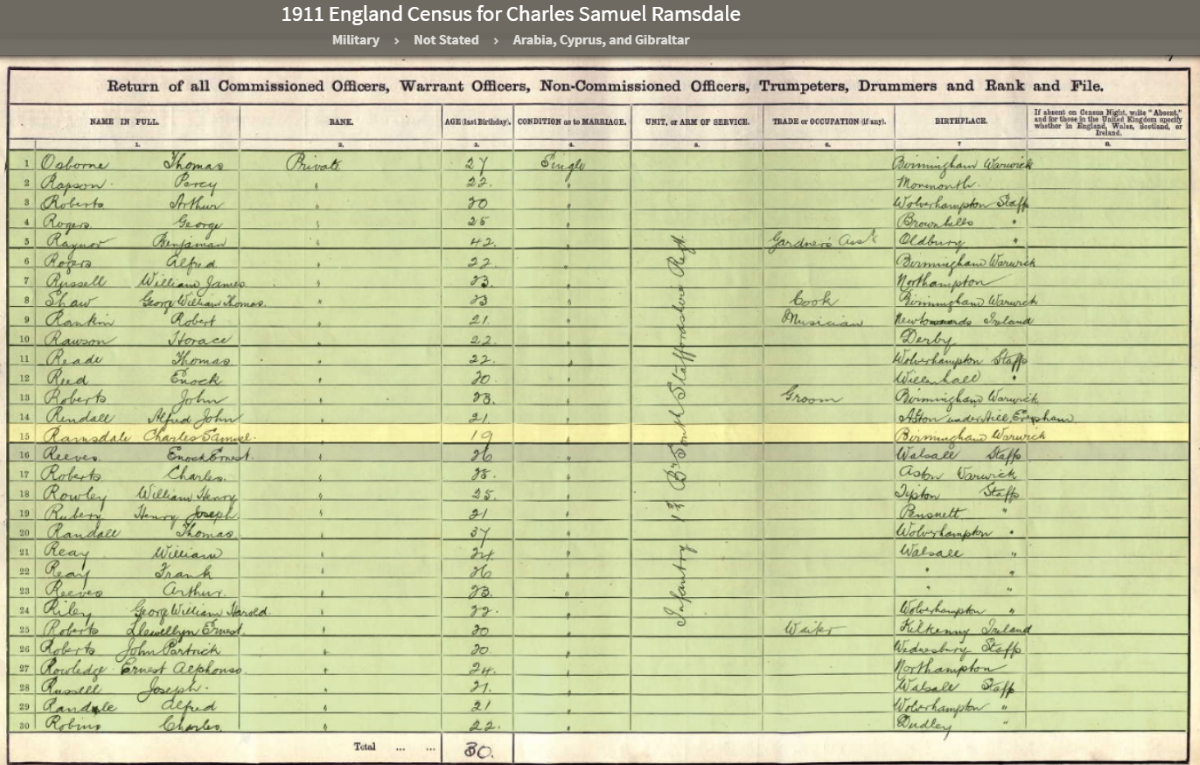 1911 England Census for Charles Samuel Ramsdale
Military › Not Stated › Arabia, Cyprus, and Gibraltar
Return of all Commissioned Officers, Warrant Officers, Non-Commissioned Officers, Trumpeters, Drummers and Rank and File.
NAME IN FULL. RANK. AGE (last Birthday). CONDITION as to MARRIAGE. UNIT, or ARM OF SERVICE. TRADE or OCCUPATION (if any). BIRTHPLACE. If absent on Census Night, write "Absent," and for those in the United Kingdom specify whether in England, Wales, Scotland, or Ireland.
1. 2. 3. 4. 5. 6. 7 8.
1 Osborne Thomas Private 27 Single Birmingham Warwick
2 Rapson Percy " 22. " Monmonth
3 Roberts Arthur " 20 " Wolverhampton Staffs
4 Rogers George " 25 " Brownhills "
5 Raynor Benjaman " 42. " Gardner's Asst Oldbury "
6 Rogers Alfred " 22. " Birmingham Warwick
7 Russell William James " 23. " Northampton
8 Shaw George William Thomas. " 23 " Cook Birmingham Warwick
9 Rankin Robert " 21. " Musician Newtownards Ireland
10 Rawson Horace " 22. " Derby
11 Reade Thomas " 22. " Wolverhampton Staffs
12 Reed Enock " 20. " Willenhall "
13 Roberts John " 23. " Groom Birmingham Warwick
14 Rendall Alfred John " 21. " Aston under Hill, Evesham
15 Ramsdale Charles Samuel. " 19 " Birmingham Warwick
16 Reeves. Enock Ernest. " 26 " Walsall Staffs
17 Roberts Charles. " " Aston Warwick
18 Rowley William Henry " 25. " Tipton Staffs
19 Rubery Henry Joseph " 21 " Pensnett "
20 Randall Thomas " 37 " Wolverhampton "
21 Reay William " 24. " Walsall "
22 Reay Frank " 26 " " "
23 Reeves Arthur. " 23. " " "
24 Riley George William Harold. " 22. " Wolverhampton "
25 Roberts Llewellyn Ernest. " 20 " Waiter Kilkenny Ireland
26 Roberts John Partrick " 20 " Wednesbury Staffs
27 Rowledge Ernest Alphonso. " 24. " Northampton
28 Russell Joseph. " 21. " Walsall Staff
29 Randale Alfred " 21 " Wolverhampton "
30 Robins Charles. " 22. " Dudley "
Infantry 1st Bn South Staffordshire Regt
Total ... ... 30.